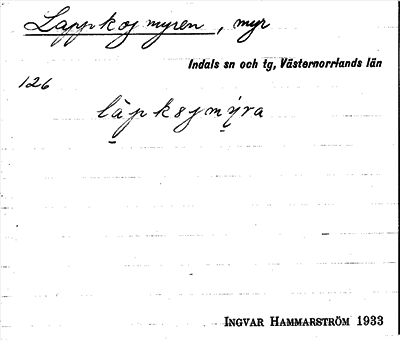 Lappkojmyren, myr
Indals sn och tg, Västernorrlands län
126
làpksjmýra
INGVAR HAMMARSTRÖM 1933